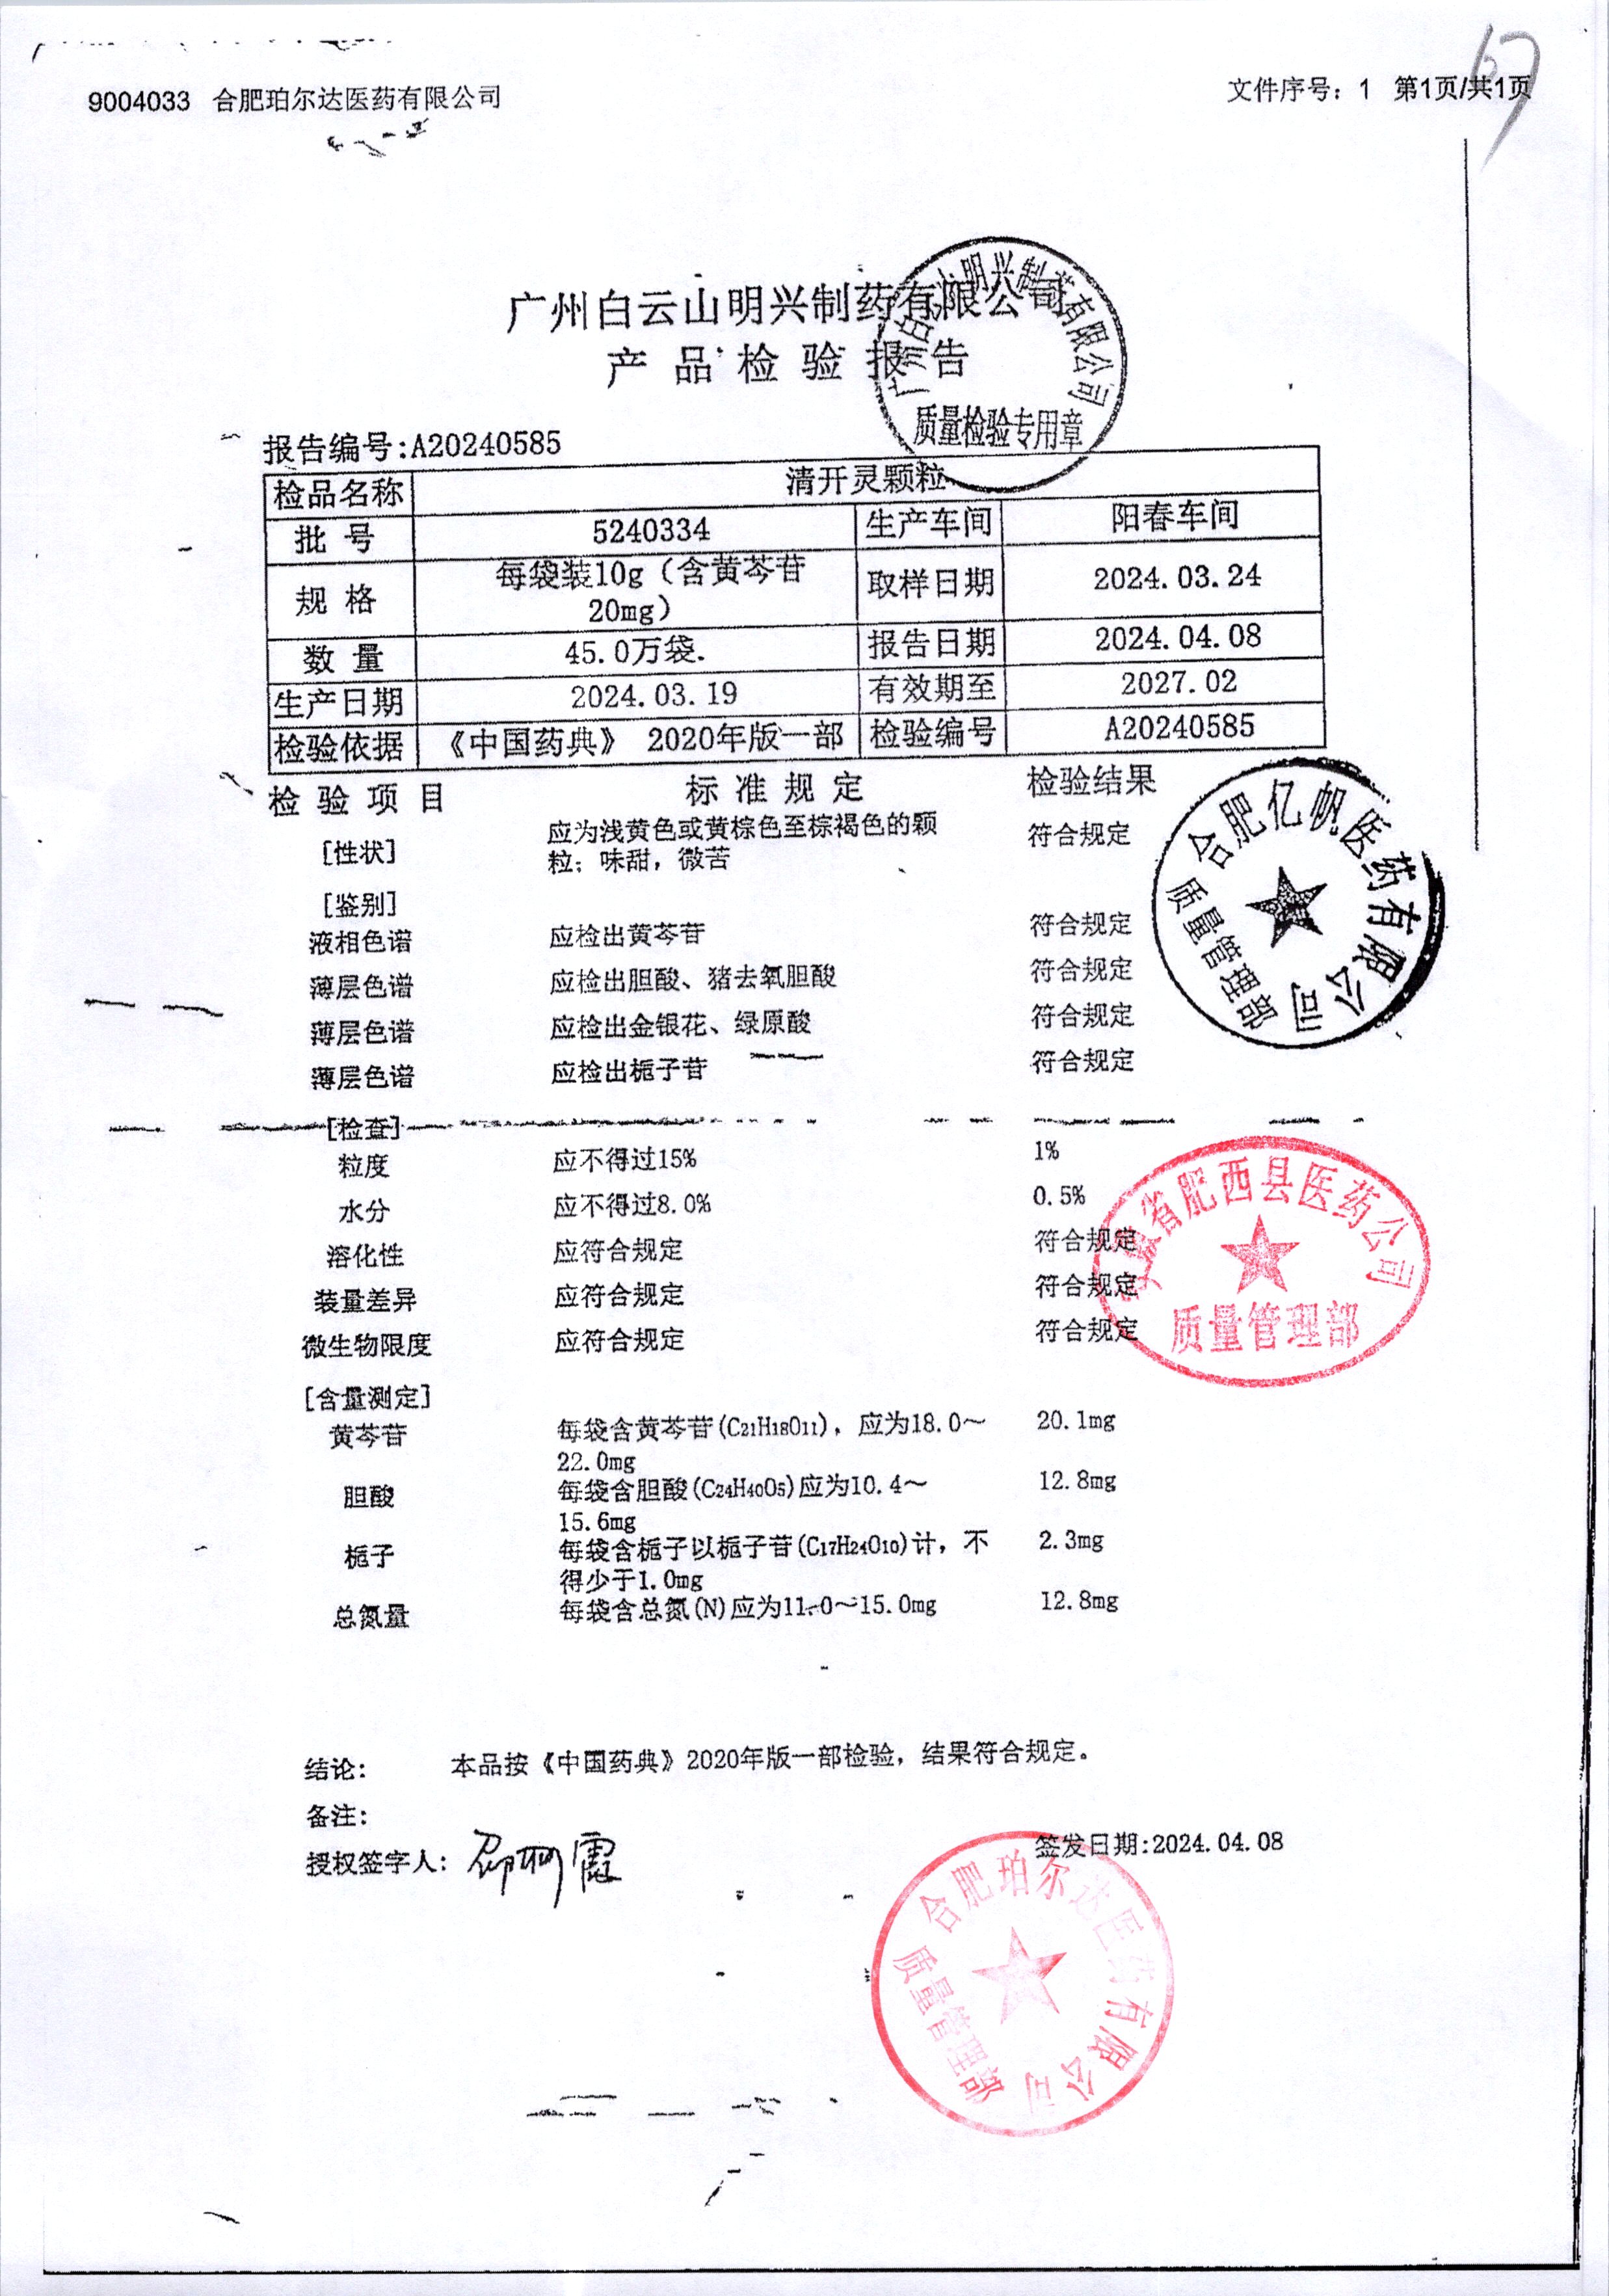 9004033 合肥珀尔达医药有限公司
文件序号：1 第1页/共1页
广州白云山明兴制药有限公司
产品检验报告
质量检验专用章
报告编号:A20240585
检品名称 清开灵颗粒
批号 5240334 生产车间 阳春车间
规格 每袋装10g（含黄芩苷20mg） 取样日期 2024.03.24
数量 45.0万袋. 报告日期 2024.04.08
生产日期 2024.03.19 有效期至 2027.02
检验依据 《中国药典》 2020年版一部 检验编号 A20240585
检验项目 标准规定 检验结果
[性状] 应为浅黄色或黄棕色至棕褐色的颗 符合规定
粒；味甜，微苦
[鉴别]
液相色谱 应检出黄芩苷 符合规定
薄层色谱 应检出胆酸、猪去氧胆酸 符合规定
薄层色谱 应检出金银花、绿原酸 符合规定
薄层色谱 应检出栀子苷 符合规定
合肥亿帆医药有限公司
质量管理部
[检查]
粒度 应不得过15% 1%
水分 应不得过8.0% 0.5%
溶化性 应符合规定 符合规定
装量差异 应符合规定 符合规定
微生物限度 应符合规定 符合规定
安徽省肥西县医药公司
质量管理部
[含量测定]
黄芩苷 每袋含黄芩苷(C21H18O11)，应为18.0～ 20.1mg
22.0mg
胆酸 每袋含胆酸(C24H40O5)应为10.4～ 12.8mg
15.6mg
栀子 每袋含栀子以栀子苷(C17H24O10)计，不 2.3mg
得少于1.0mg
总氮量 每袋含总氮(N)应为11.0～15.0mg 12.8mg
结论： 本品按《中国药典》2020年版一部检验，结果符合规定。
备注：
授权签字人： 签发日期:2024.04.08
合肥珀尔达医药有限公司
质量管理部